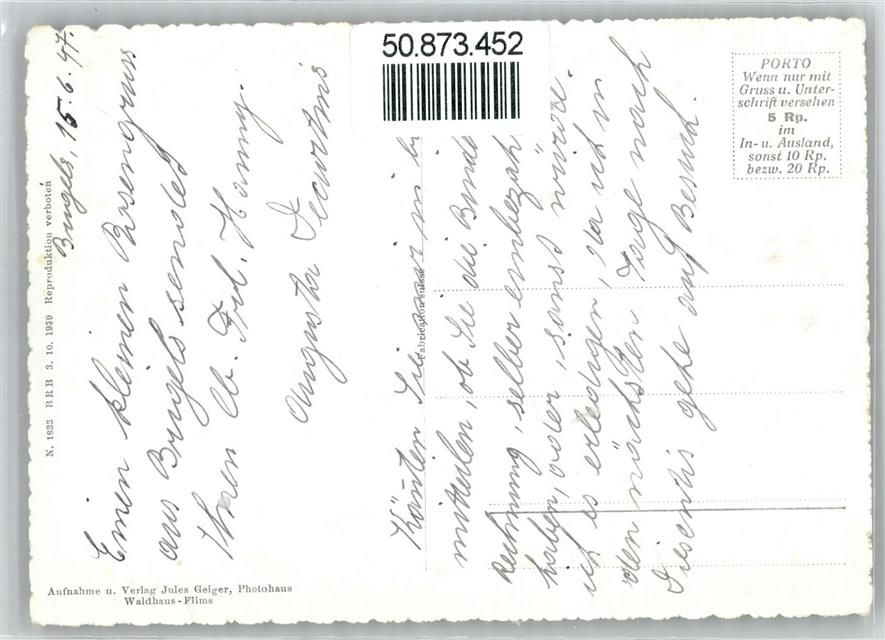 50.873.452
PORTO
Wenn nur mit
Gruss u. Unter-
schrift versehen
5 Rp.
im
In- u. Ausland,
sonst 10 Rp.
bezw. 20 Rp.
N. 1833 BRB 3. 10. 1939 Reproduktion verboten
Brigels, 15.6.47.
Einen kleinen Rosengruss
aus Brigels sendet
Ihnen lb. Frl. Hanny.
Augusta Decurtins
Fabrication suisse
Könnten Sie mir
mitteilen, ob Sie die Binde
Rechnung, selber einbezah
haben, oder, sonst würde.
ich es erledigen, da ich in
den nächsten Tage nach
Disentis gehe auf Besuch.
Aufnahme u. Verlag Jules Geiger, Photohaus
Waldhaus-Flims